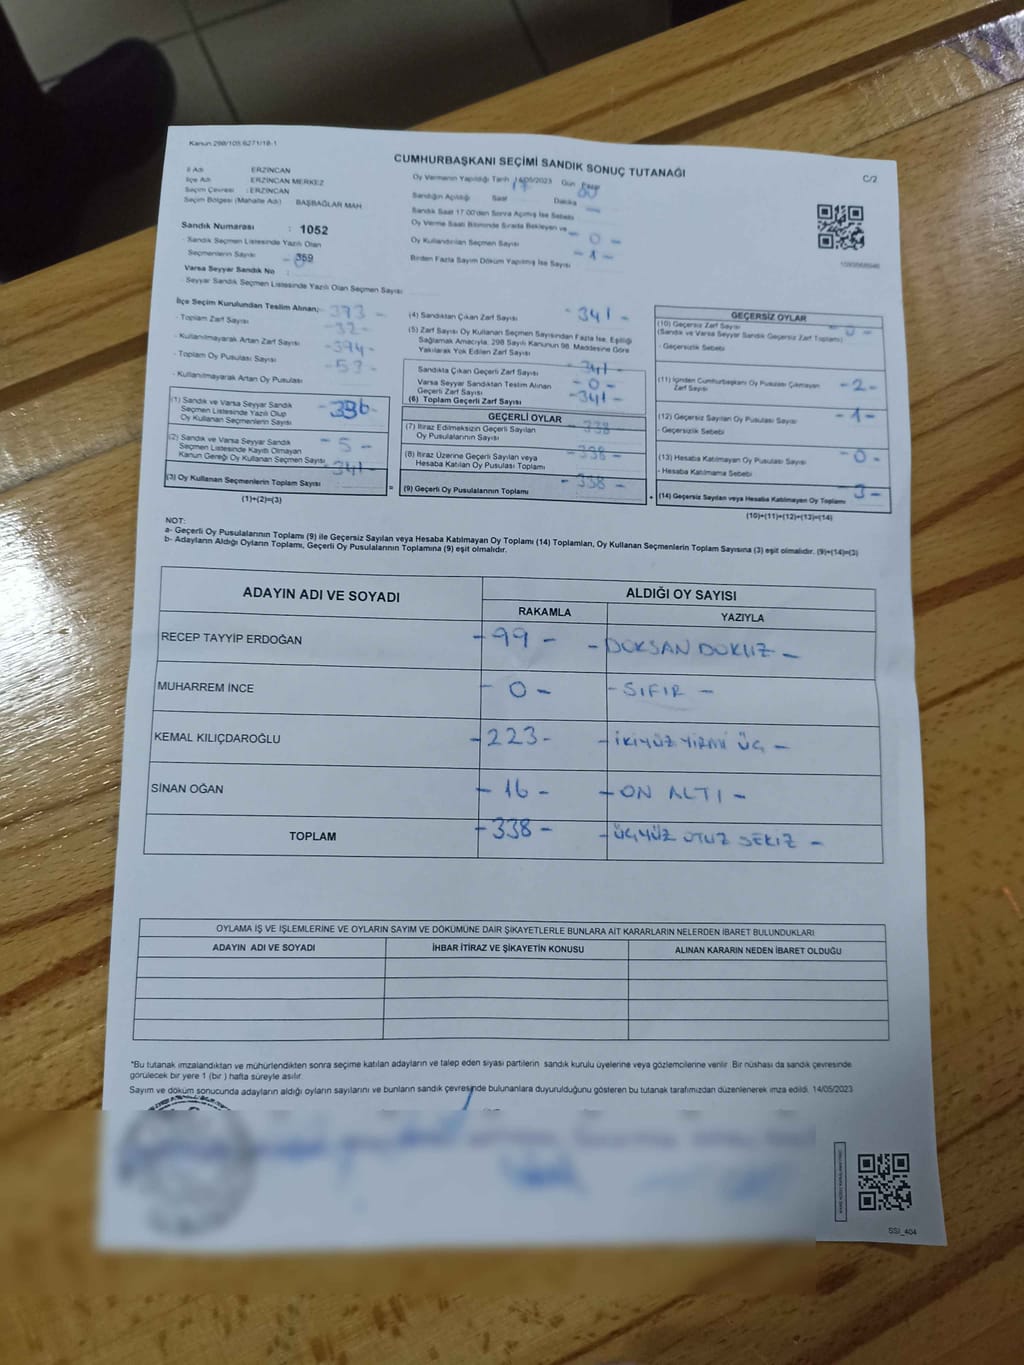 Kanun:298/105,6271/18-1
CUMHURBAŞKANI SEÇİMİ SANDIK SONUÇ TUTANAĞI
C/2
İl Adı : ERZİNCAN
İlçe Adı : ERZİNCAN MERKEZ
Seçim Çevresi : ERZİNCAN
Seçim Bölgesi (Mahalle Adı) BAŞBAĞLAR MAH.
Sandık Numarası : 1052
- Sandık Seçmen Listesinde Yazılı Olan
Seçmenlerin Sayısı : 359
Varsa Seyyar Sandık No :
- Seyyar Sandık Seçmen Listesinde Yazılı Olan Seçmen Sayısı
Oy Vermenin Yapıldığı Tarih 14/05/2023 Gün Pazar
Sandığın Açıldığı Saat 17 Dakika
Sandık Saat 17.00'den Sonra Açılmış İse Sebebi -
Oy Verme Saati Bitiminde Sırada Bekleyen ve
Oy Kullandırılan Seçmen Sayısı - 0 -
Birden Fazla Sayım Döküm Yapılmış İse Sayısı - 1 -
İlçe Seçim Kurulundan Teslim Alınan;
- Toplam Zarf Sayısı - 373 -
- Kullanılmayarak Artan Zarf Sayısı - 32 -
- Toplam Oy Pusulası Sayısı - 394 -
- Kullanılmayarak Artan Oy Pusulası - 53 -
(1) Sandık ve Varsa Seyyar Sandık
Seçmen Listesinde Yazılı Olup
Oy Kullanan Seçmenlerin Sayısı - 336 -
(2) Sandık ve Varsa Seyyar Sandık
Seçmen Listesinde Kayıtlı Olmayan
Kanun Gereği Oy Kullanan Seçmen Sayısı - 5 -
(3) Oy Kullanan Seçmenlerin Toplam Sayısı - 341 -
(1)+(2)=(3)
(4) Sandıktan Çıkan Zarf Sayısı - 341 -
(5) Zarf Sayısı Oy Kullanan Seçmen Sayısından Fazla İse, Eşitliği
Sağlamak Amacıyla, 298 Sayılı Kanunun 98. Maddesine Göre
Yakılarak Yok Edilen Zarf Sayısı
Sandıkta Çıkan Geçerli Zarf Sayısı - 341 -
Varsa Seyyar Sandıktan Teslim Alınan
Geçerli Zarf Sayısı - 0 -
(6) Toplam Geçerli Zarf Sayısı - 341 -
GEÇERLİ OYLAR
(7) İtiraz Edilmeksizin Geçerli Sayılan
Oy Pusulalarının Sayısı - 338 -
(8) İtiraz Üzerine Geçerli Sayılan veya
Hesaba Katılan Oy Pusulası Toplamı - 338 -
= (9) Geçerli Oy Pusulalarının Toplamı - 338 -
GEÇERSİZ OYLAR
(10) Geçersiz Zarf Sayısı
(Sandık ve Varsa Seyyar Sandık Geçersiz Zarf Toplamı) - 0 -
- Geçersizlik Sebebi
(11) İçinden Cumhurbaşkanı Oy Pusulası Çıkmayan
Zarf Sayısı - 2 -
(12) Geçersiz Sayılan Oy Pusulası Sayısı - 1 -
- Geçersizlik Sebebi
(13) Hesaba Katılmayan Oy Pusulası Sayısı - 0 -
- Hesaba Katılmama Sebebi
+ (14) Geçersiz Sayılan veya Hesaba Katılmayan Oy Toplamı - 3 -
(10)+(11)+(12)+(13)=(14)
NOT:
a- Geçerli Oy Pusulaları Toplamı (9) ile Geçersiz Sayılan veya Hesaba Katılmayan Oy Toplamı (14) Toplamları, Oy Kullanan Seçmenlerin Toplam Sayısına (3) eşit olmalıdır. (9)+(14)=(3)
b- Adayların Aldığı Oyların Toplamı, Geçerli Oy Pusulalarının Toplamına (9) eşit olmalıdır.
ADAYIN ADI VE SOYADI ALDIĞI OY SAYISI
RAKAMLA YAZIYLA
RECEP TAYYİP ERDOĞAN - 99 - - DOKSAN DOKUZ -
MUHARREM İNCE - 0 - - SIFIR -
KEMAL KILIÇDAROĞLU - 223 - - İKİYÜZ YİRMİ ÜÇ -
SİNAN OĞAN - 16 - - ON ALTI -
TOPLAM - 338 - - ÜÇYÜZ OTUZ SEKİZ -
OYLAMA İŞ VE İŞLEMLERİNE VE OYLARIN SAYIM VE DÖKÜMÜNE DAİR ŞİKAYETLERLE BUNLARA AİT KARARLARIN NELERDEN İBARET BULUNDUKLARI
ADAYIN ADI VE SOYADI İHBAR İTİRAZ VE ŞİKAYETİN KONUSU ALINAN KARARIN NEDEN İBARET OLDUĞU
*Bu tutanak imzalandıktan ve mühürlendikten sonra seçime katılan adayların ve talep eden siyasi partilerin sandık kurulu üyelerine veya gözlemcilerine verilir. Bir nüshası da sandık çevresinde
görülecek bir yere 1 (bir ) hafta süreyle asılır.
Sayım ve döküm sonucunda adayların aldığı oyların sayılarını ve bunların sandık çevresinde bulunanlara duyurulduğunu gösteren bu tutanak tarafımızdan düzenlenerek imza edildi. 14/05/2023
SSI_404